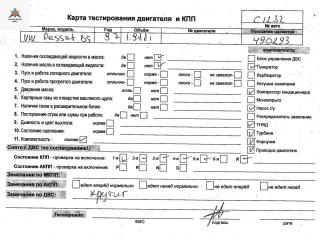 Карта тестирования двигателя и КПП
C1232
№ авто
Марка, модель, Год Объём № двигателя Показания одометра
VW Passat B5 97 1.9 tdi 490293
комплектность
1. Наличие охлаждающей жидкости в масле: да нет
2. Наличие масла в охлаждающей жидкости: да нет
3. Пуск и работа холодного двигателя: отлично- норма- плохо- не завелся-
4. Пуск и работа прогретого двигателя: отлично- норма- плохо- не завелся-
5. Давление масла: есть нет
6. Картерные газы из отверстия масляного щупа: да нет
7. Наличие газов в расширительном бачке: да нет
8. Посторонние стуки или шумы при работе: да нет
9. Дымность и цвет выхлопа:
10. Состояние сцепления: норма-
11. Комплектность: полная
Блок управления ДВС
Генератор
Карбюратор
Катушки зажигания
Компрессор кондиционера
Моновпрыск
Насос г/у
Распределитель зажигания
ТНВД
Турбина
Форсунки
Проводка двигателя
Снято с ДВС (по согласованию):
Состояние КПП - проверка на включение: 1-я 2-я 3-я 4-я 5-я R
Состояние АКПП - проверка на включение: P R N D
Замечания по МКПП:
Замечания по АКПП: едет вперед нормально едет назад нормально не едет вперёд не едет назад
Замечания по ДВС: крутит
Тестировал:
ФИО подпись дата